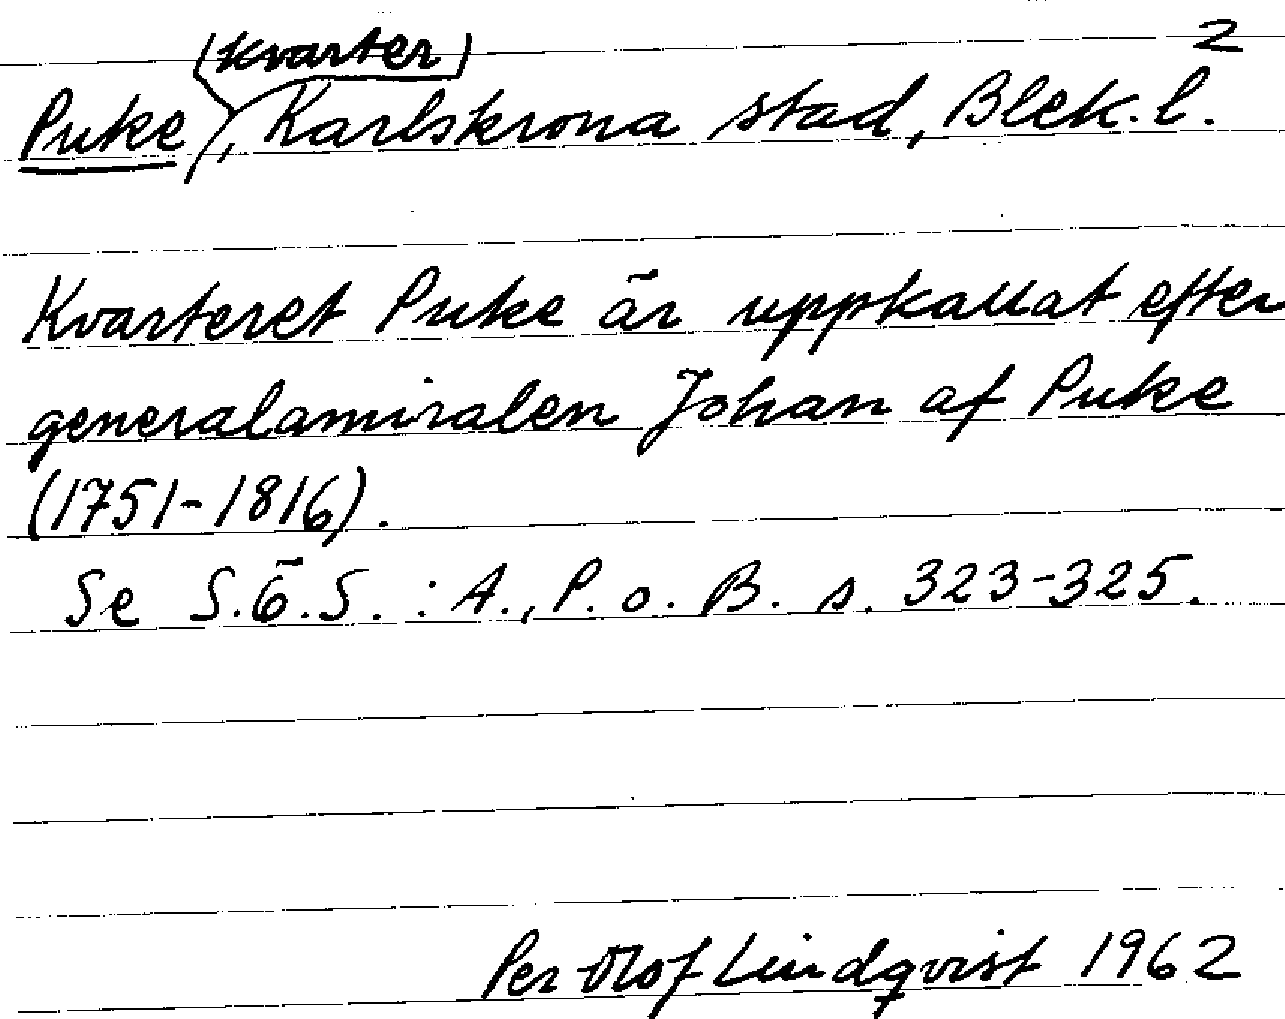 2
(kvarter)
Puke, Karlskrona stad, Blek. l.
Kvarteret Puke är uppkallat efter
generalamiralen Johan af Puke
(1751-1816).
Se S.Ö.S. : A., P. o. B. s. 323-325.
Per-Olof Lindqvist 1962